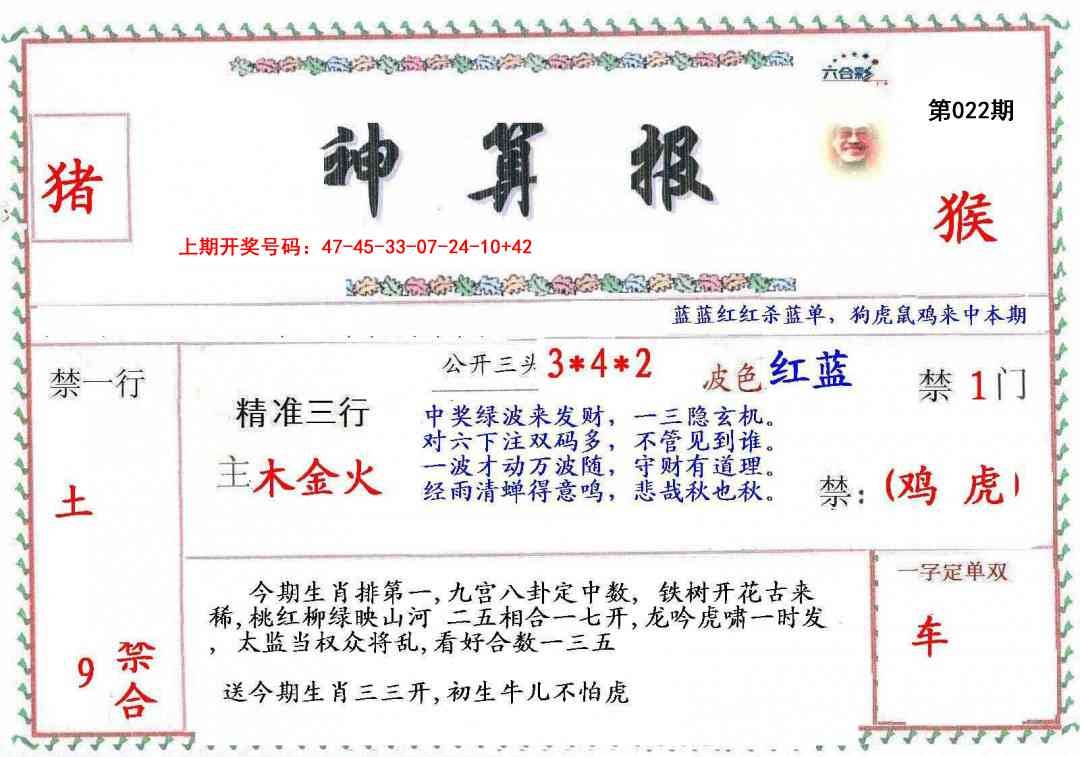 六合彩
第022期
神算报
猪
猴
上期开奖号码：47-45-33-07-24-10+42
蓝蓝红红杀蓝单，狗虎鼠鸡来中本期
禁一行
土
9 禁合
精准三行
主 木金火
公开三头 3*4*2
波色 红蓝
中奖绿波来发财，一三隐玄机。
对六下注双码多，不管见到谁。
一波才动万波随，守财有道理。
经雨清蝉得意鸣，悲哉秋也秋。
禁 1 门
禁:(鸡 虎)
今期生肖排第一,九宫八卦定中数，铁树开花古来
稀,桃红柳绿映山河 二五相合一七开,龙吟虎啸一时发
，太监当权众将乱,看好合数一三五
送今期生肖三三开,初生牛儿不怕虎
一字定单双
车